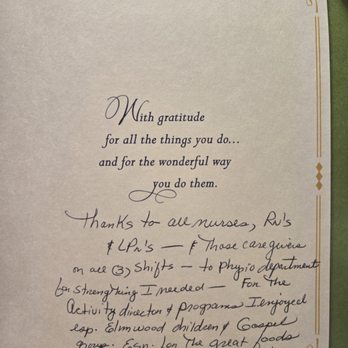 With gratitude
for all the things you do...
and for the wonderful way
you do them.
Thanks to all nurses, RN's
& LPN's — & Those caregivers
on all (3) Shifts — to Physio department
for strengthing I needed — For The
Activity director & programs I enjoyed
esp. Elmwood children & Gospel
group. Esp. for The great foods